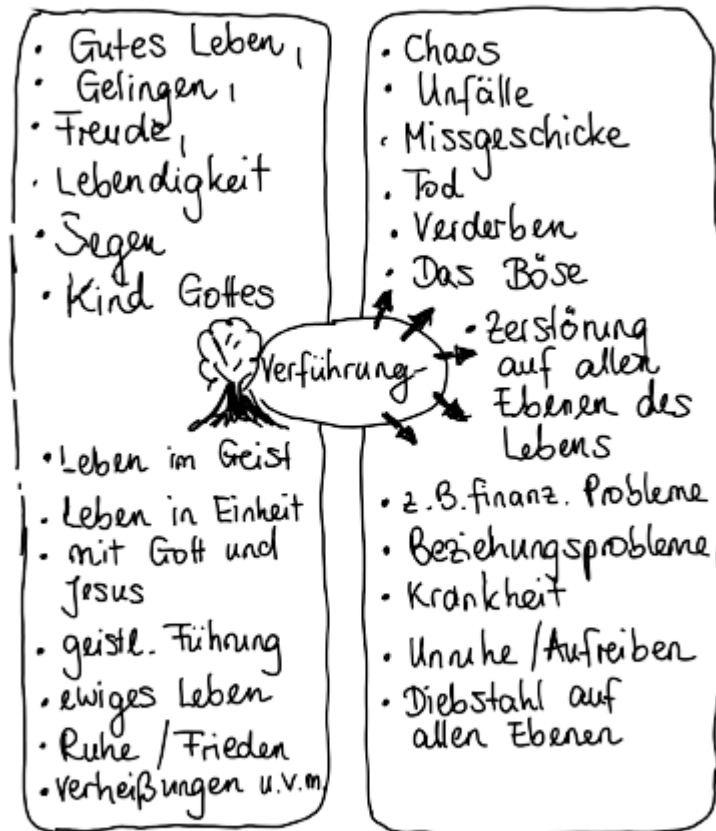 • Gutes Leben,
• Gelingen,
• Freude,
• Lebendigkeit
• Segen
• Kind Gottes
• Leben im Geist
• Leben in Einheit
• mit Gott und
Jesus
• geistl. Führung
• ewiges Leben
• Ruhe / Frieden
• Verheißungen u.v.m.
Verführung
• Chaos
• Unfälle
• Missgeschicke
• Tod
• Verderben
• Das Böse
• Zerstörung
auf allen
Ebenen des
Lebens
• z.B. finanz. Probleme
• Beziehungsprobleme
• Krankheit
• Unruhe / Aufreiben
• Diebstahl auf
allen Ebenen